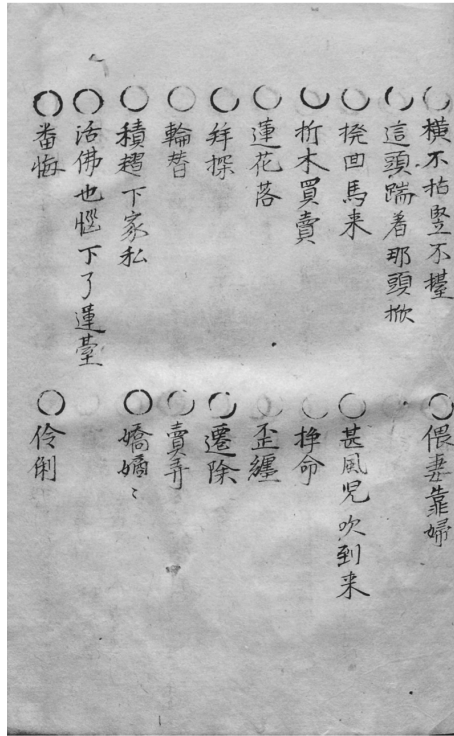 横不拈竪不擡
這頭踹着那頭掀
挽回馬来
折木買賣
蓮花落
拜探
輪替
積趲下家私
活佛也惱下了蓮臺
畨悔
偎妻靠婦
甚風児吹到来
挣命
歪纏
遷除
賣弄
嬌嬌〻
伶俐